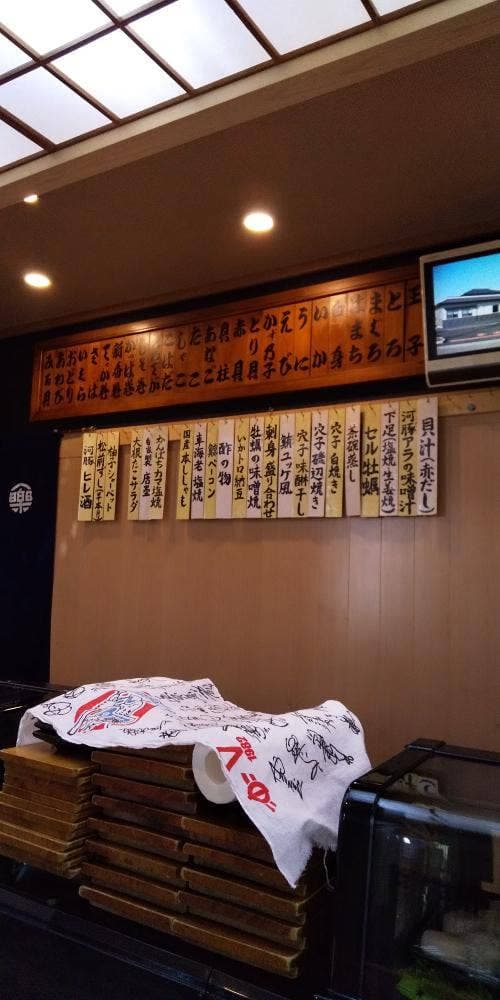 とろ
まぐろ
はまち
白身
いか
うに
えび
かずの子
とり貝
赤貝
貝柱
あなご
たこ
しゃこ
さば
いくら
おどり
あわび
貝汁(赤だし)
河豚アラの味噌汁
下足(塩焼 生姜焼)
セル牡蠣
茶椀蒸し
穴子白焼き
穴子磯辺焼き
穴子味醂干し
鯖ユッケ風
刺身盛り合わせ
牡蠣の味噌焼
いかトロ納豆
酢の物
鯨ベーコン
車海老塩焼
国産本ししゃも
かんぱちカマ塩焼
大根たこサラダ
柚子シャーベット
河豚ヒレ酒
1982
V